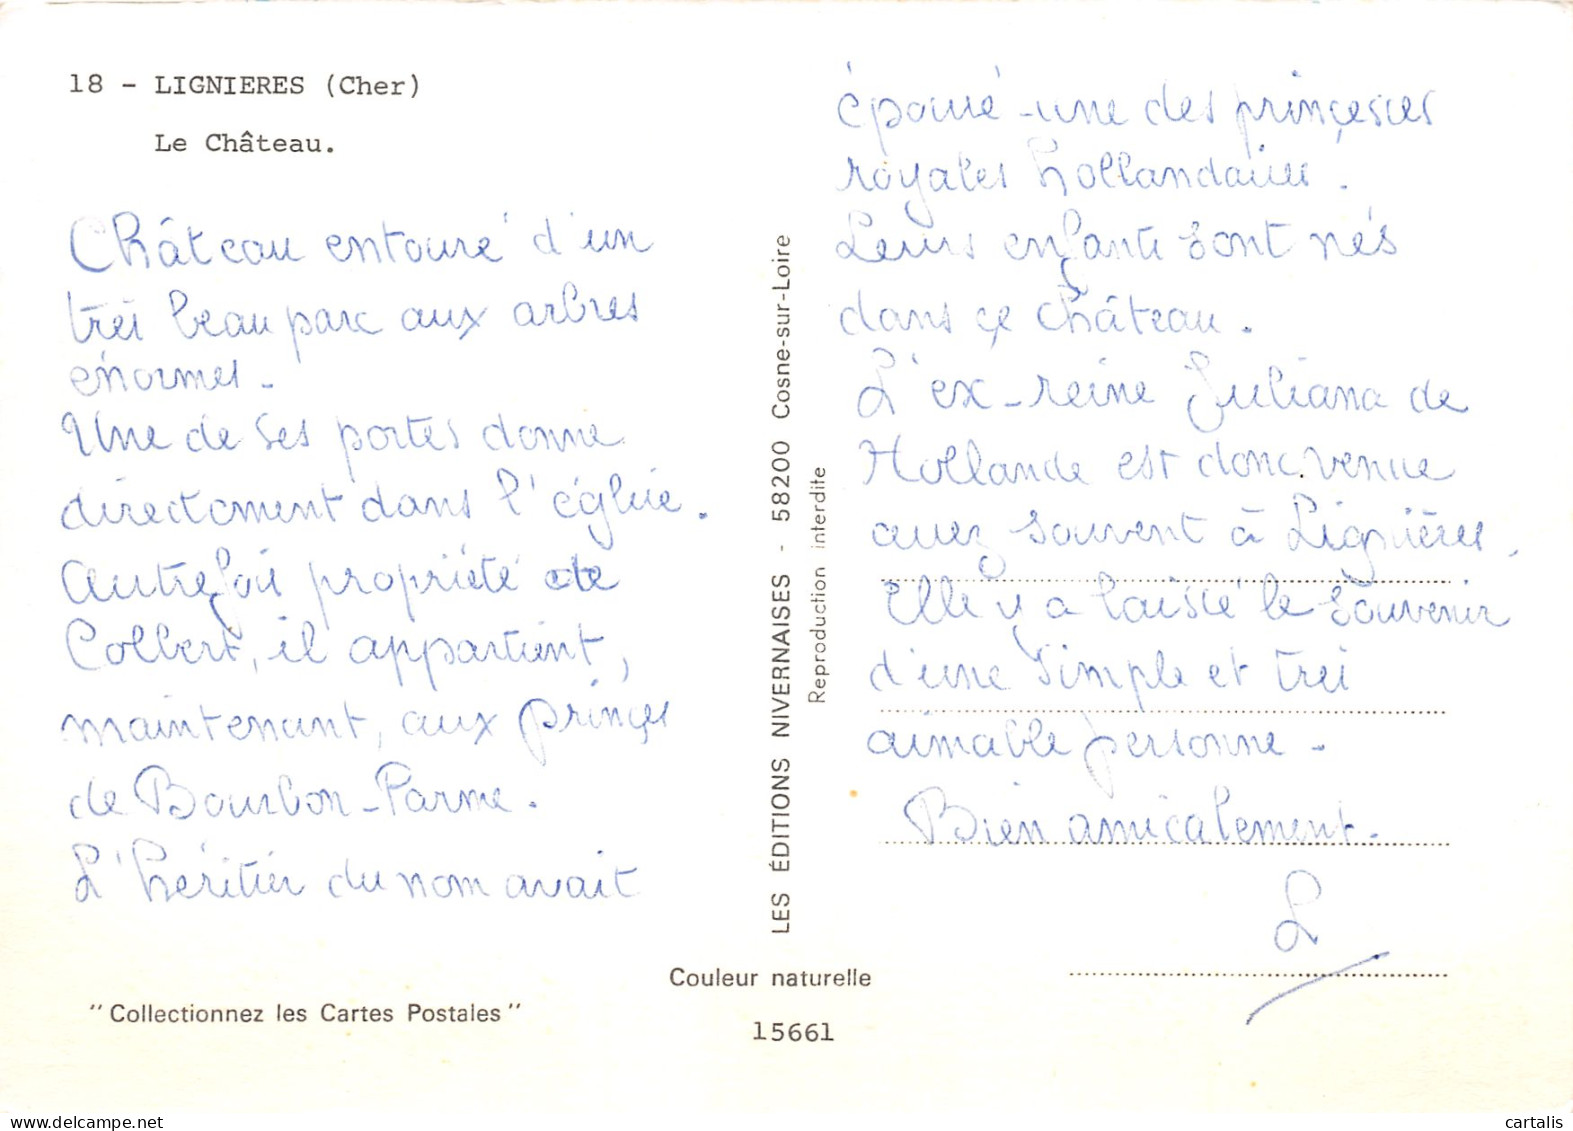 18 - LIGNIERES (Cher)
Le Château.
Château entouré d'un
très beau parc aux arbres
énormes -
Une de ses portes donne
directement dans l'église.
Autrefois propriété de
Colbert, il appartient,
maintenant, aux princes
de Bourbon-Parme.
L'héritier du nom avait
"Collectionnez les Cartes Postales"
LES ÉDITIONS NIVERNAISES - 58200 Cosne-sur-Loire
Reproduction interdite
Couleur naturelle
15661
épousé une des princesses
royales hollandaises.
Leurs enfants sont nés
dans ce château.
L'ex-reine Juliana de
Hollande est donc venue
assez souvent à Lignières.
Elle y a laissé le souvenir
d'une simple et très
aimable personne -
Bien amicalement.
L
cartalis
www.delcampe.net